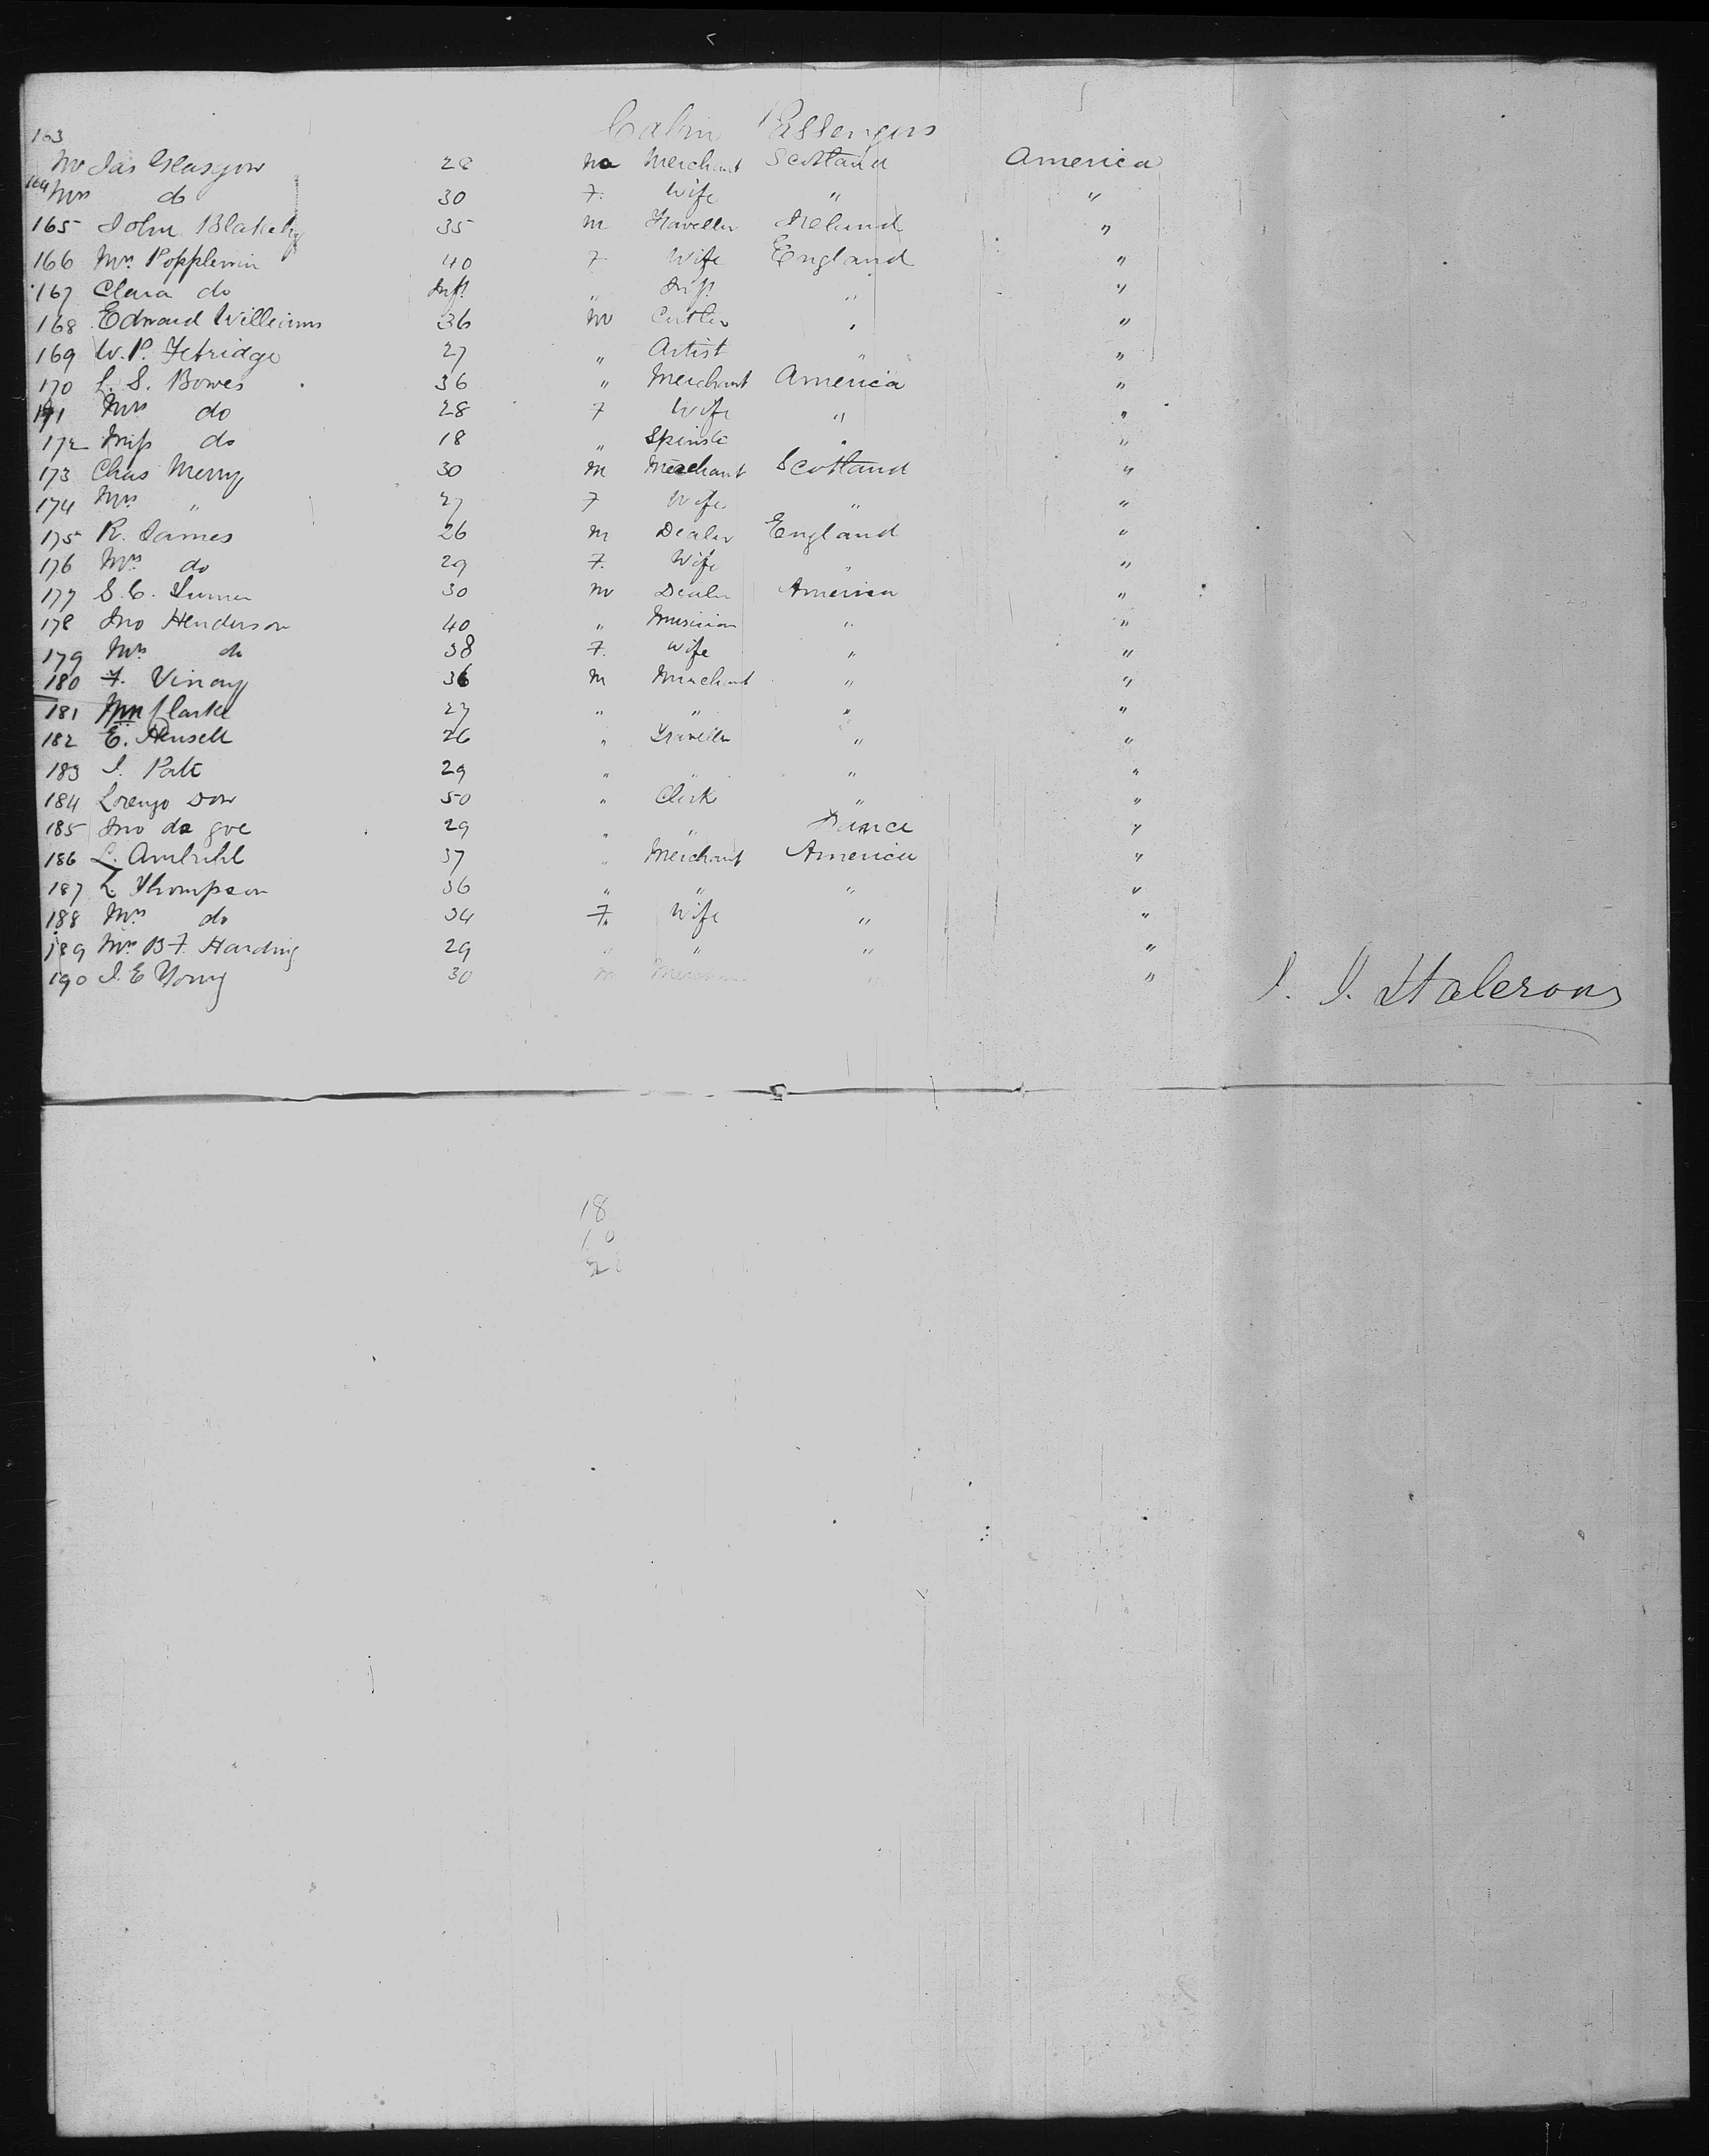 Cabin Passengers
163
Mr Jas Glasgow 28 M Merchant Scotland America
164 Mrs do 30 F. Wife " "
165 John Blakely 35 M Traveller Ireland "
166 Mrs Popplewin 40 F Wife England "
167 Clara do Inft " Inft " "
168 Edward Williams 36 M Cutler " "
169 W. P. Fetridge 27 " Artist " "
170 L. S. Bowes 36 " Merchant America "
171 Mrs do 28 F Wife " "
172 Miss do 18 " Spinst " "
173 Chas Merry 30 M Merchant Scotland "
174 Mrs " 27 F Wife " "
175 R. James 26 M Dealer England "
176 Mrs do 29 F. Wife " "
177 S. C. 30 M Dealer America "
178 Jno Henderson 40 " Musician " "
179 Mrs do 38 F. Wife " "
180 F. Vinay 36 M Merchant " "
181 Clarke 27 " " " "
182 E. Hensell 26 " Traveller " "
183 J. Pate 29 " " " "
184 Lorenzo Dow 50 " Clerk " "
185 Jno da goe 29 " " France "
186 L. 37 " Merchant America "
187 L. Thompson 36 " " " "
188 Mrs do 34 F. Wife " "
189 Mrs B F. Harding 29 " " " "
190 J. E Young 30 M " "
J. J.
18
10